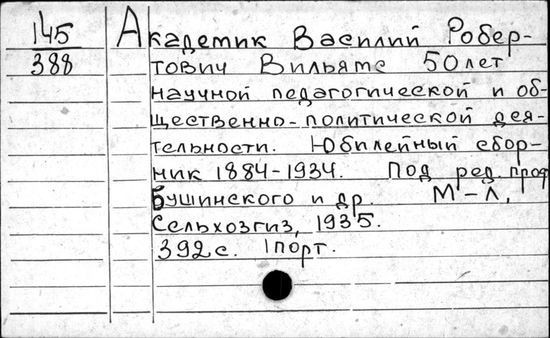 145
388
Академик Василий Робер-
тович Вильямс 50 лет
научной педагогической и об-
щественно-политической дея-
тельности. Юбилейный сбор-
ник 1884-1934. Под ред. проф
Бушинского и др. М-Л,
Сельхозгиз, 1935.
392с. 1порт.